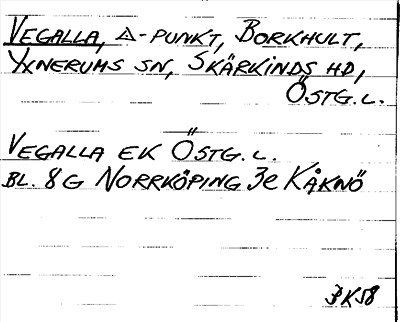 VEGALLA, △-PUNKT, BORKHULT,
YXNERUMS SN, SKÄRKINDS HD,
ÖSTG.L.
VEGALLA EK ÖSTG.L.
BL. 8G NORRKÖPING 3e KÅKNÖ